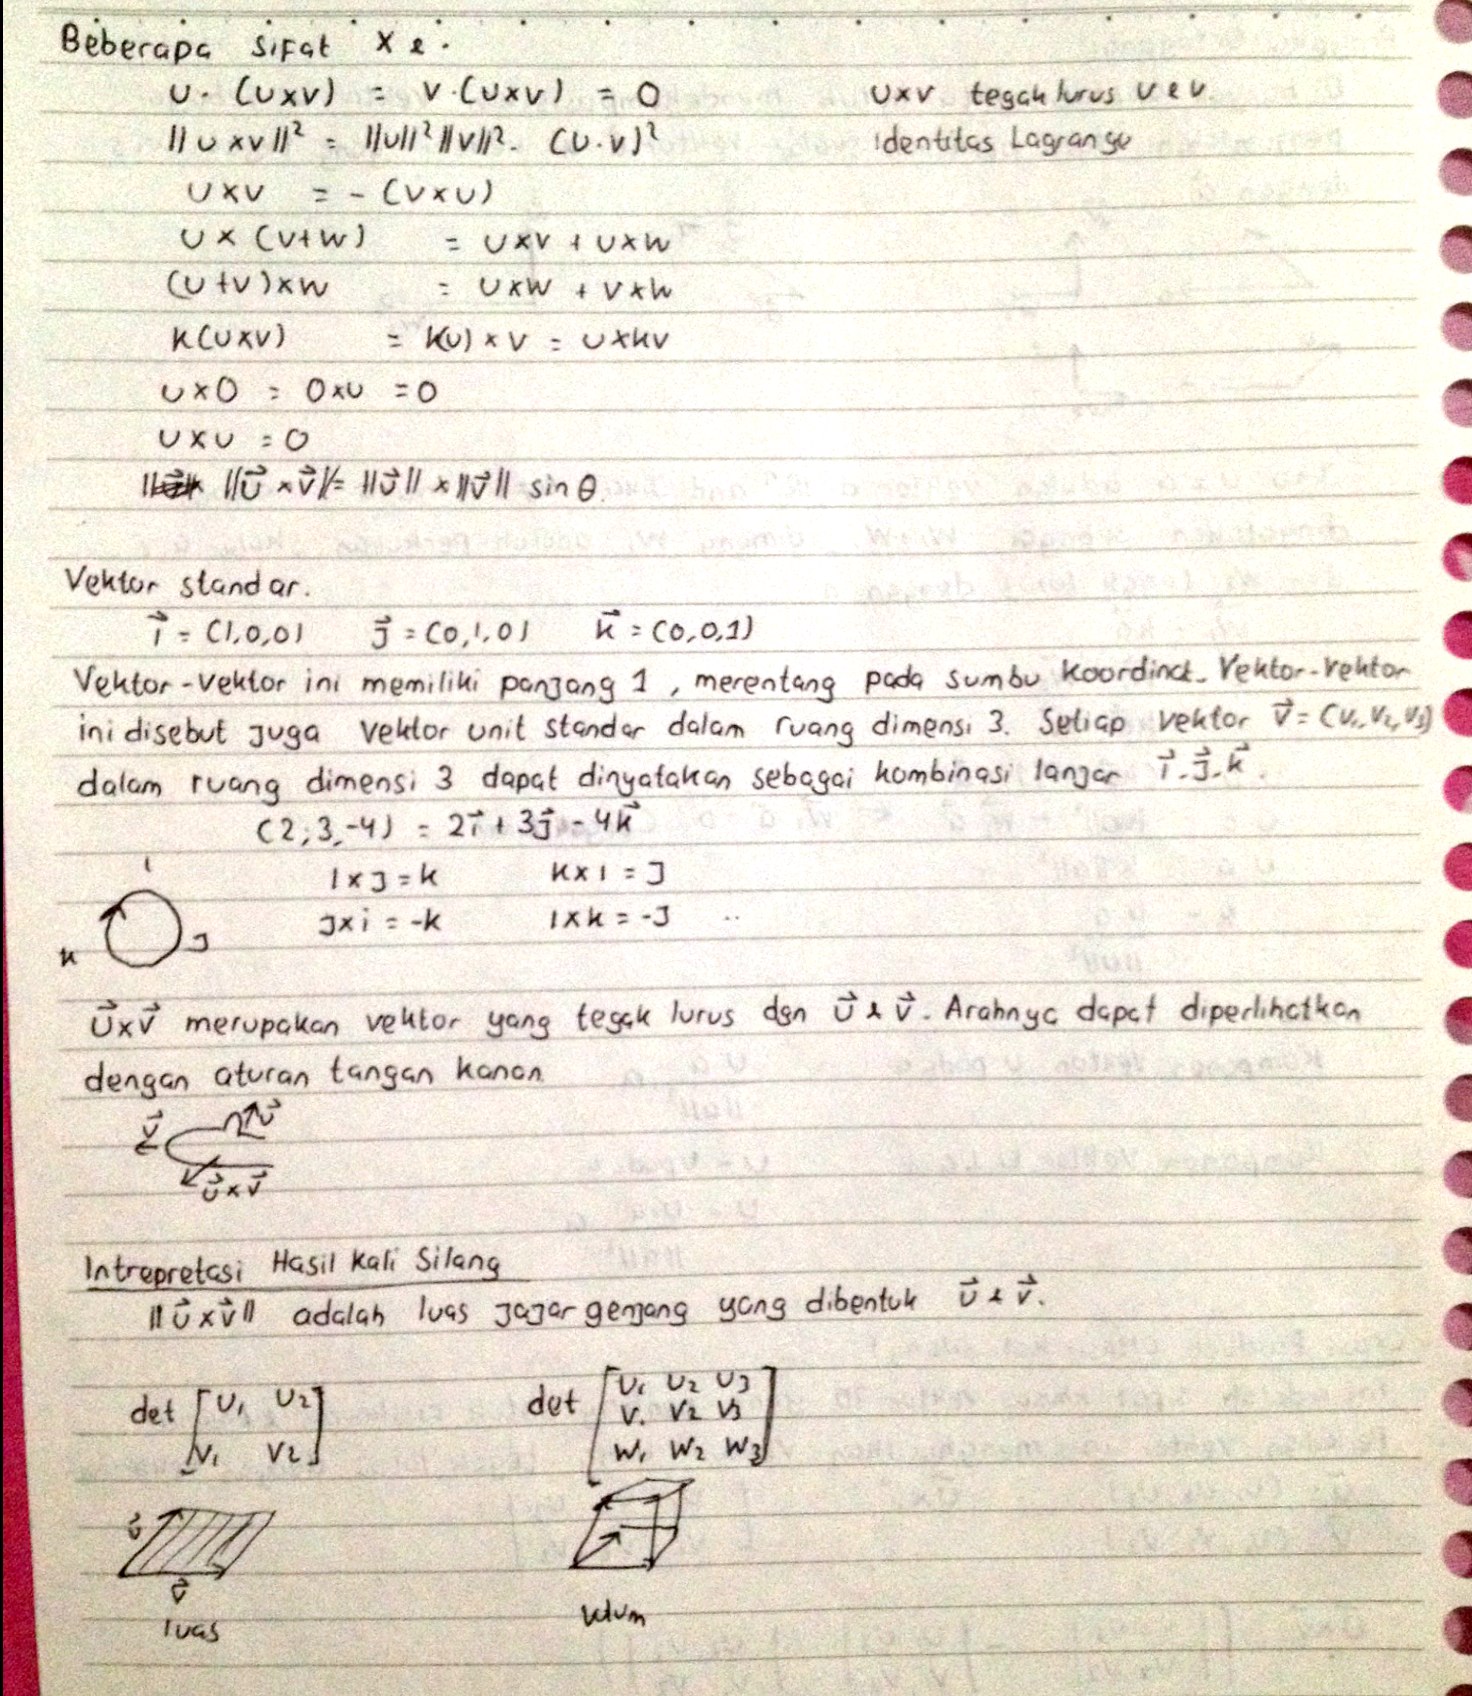 Beberapa sifat X &.
U . (U×V) = V . (U×V) = 0 U×V tegak lurus U & V.
||U×V||² = ||U||² ||V||² - (U.V)² Identitas Lagrange
U×V = - (V×U)
U × (V+W) = U×V + U×W
(U+V)×W = U×W + V×W
K(U×V) = K(U) × V = U×KV
U×0 = 0×U = 0
U×U = 0
||U⃗ × V⃗|| = ||U⃗|| × ||V⃗|| sin θ.
Vektor standar.
i⃗ = (1,0,0) j⃗ = (0,1,0) k⃗ = (0,0,1)
Vektor-vektor ini memiliki panjang 1, merentang pada sumbu koordinat. Vektor-vektor
ini disebut juga vektor unit standar dalam ruang dimensi 3. Setiap vektor V⃗ = (V₁, V₂, V₃)
dalam ruang dimensi 3 dapat dinyatakan sebagai kombinasi lanjar i⃗, j⃗, k⃗.
(2, 3, -4) = 2i⃗ + 3j⃗ - 4k⃗
i
i × j = k k × i = j
j × i = -k i × k = -j ..
k j
U⃗×V⃗ merupakan vektor yang tegak lurus dgn U⃗ & V⃗. Arahnya dapat diperlihatkan
dengan aturan tangan kanan
V⃗ U⃗
U⃗×V⃗
Intrepretasi Hasil Kali Silang
||U⃗×V⃗|| adalah luas jajar genjang yang dibentuk U⃗ & V⃗.
det [U₁ U₂ det [U₁ U₂ U₃
V₁ V₂ V₃
V₁ V₂] W₁ W₂ W₃]
U⃗
V⃗
luas volum